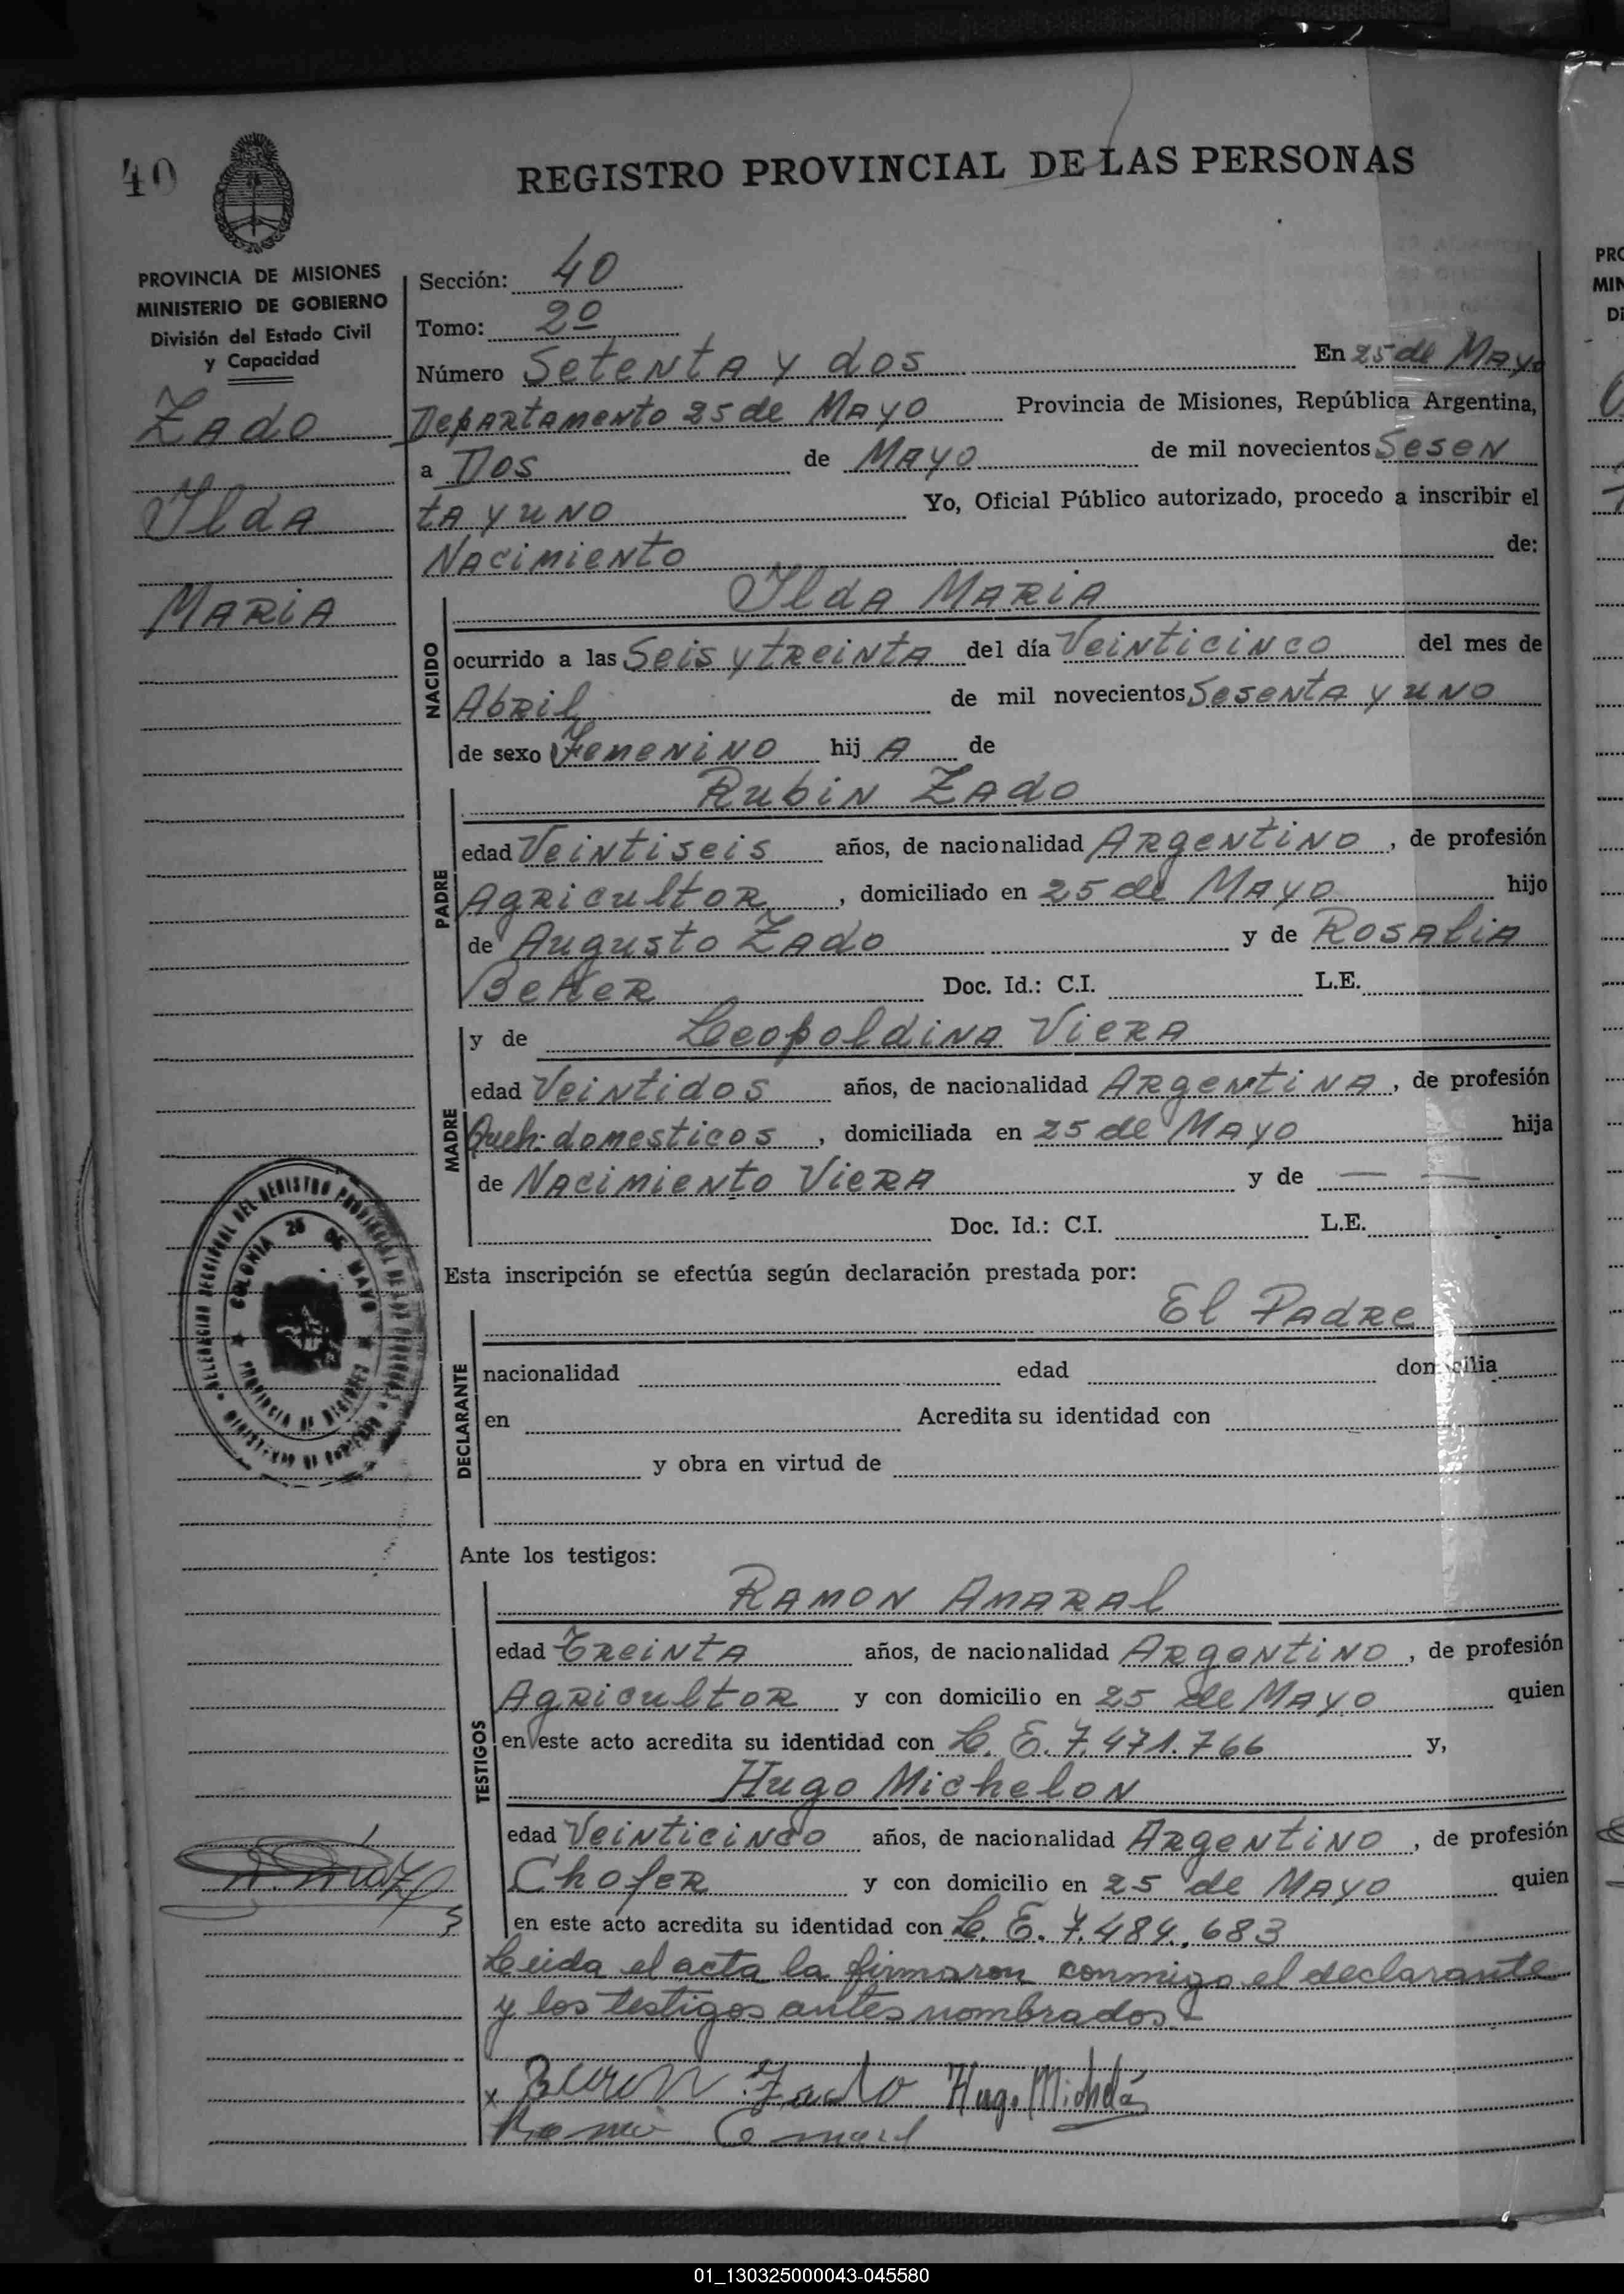 40
REGISTRO PROVINCIAL DE LAS PERSONAS
PROVINCIA DE MISIONES
MINISTERIO DE GOBIERNO
División del Estado Civil
y Capacidad
Zado
Ilda
MARIA
Sección: 40
Tomo: 2º
Número Setenta y dos En 25 de Mayo
Departamento 25 de Mayo Provincia de Misiones, República Argentina,
a Dos de Mayo de mil novecientos Sesen
ta y uno Yo, Oficial Público autorizado, procedo a inscribir el
Nacimiento de:
Ilda Maria
NACIDO
ocurrido a las Seis y treinta del día Veinticinco del mes de
Abril de mil novecientos Sesenta y uno
de sexo Femenino hij A de
Rubin Zado
PADRE
edad Veintiseis años, de nacionalidad Argentino, de profesión
Agricultor, domiciliado en 25 de Mayo hijo
de Augusto Zado y de Rosalia
Beker Doc. Id.: C.I. L.E.
y de Leopoldina Viera
MADRE
edad Veintidos años, de nacionalidad Argentina, de profesión
Queh: domesticos, domiciliada en 25 de Mayo hija
de Nacimiento Viera y de — —
Doc. Id.: C.I. L.E.
Esta inscripción se efectúa según declaración prestada por:
El Padre
DECLARANTE
nacionalidad edad domicilia
en Acredita su identidad con
y obra en virtud de
COLONIA 25 DE MAYO
PROVINCIA DE MISIONES
Ante los testigos:
Ramon Amaral
TESTIGOS
edad Treinta años, de nacionalidad Argentino, de profesión
Agricultor y con domicilio en 25 de Mayo quien
en este acto acredita su identidad con L. E. 7.471.766 y,
Hugo Michelon
edad Veinticinco años, de nacionalidad Argentino, de profesión
Chofer y con domicilio en 25 de Mayo quien
en este acto acredita su identidad con L. E. 7.484.683
Leida el acta la firmaron conmigo el declarante
y los testigos antes nombrados.-
x Zado Hugo Michelón
PRO
MIN
Di
01_130325000043-045580